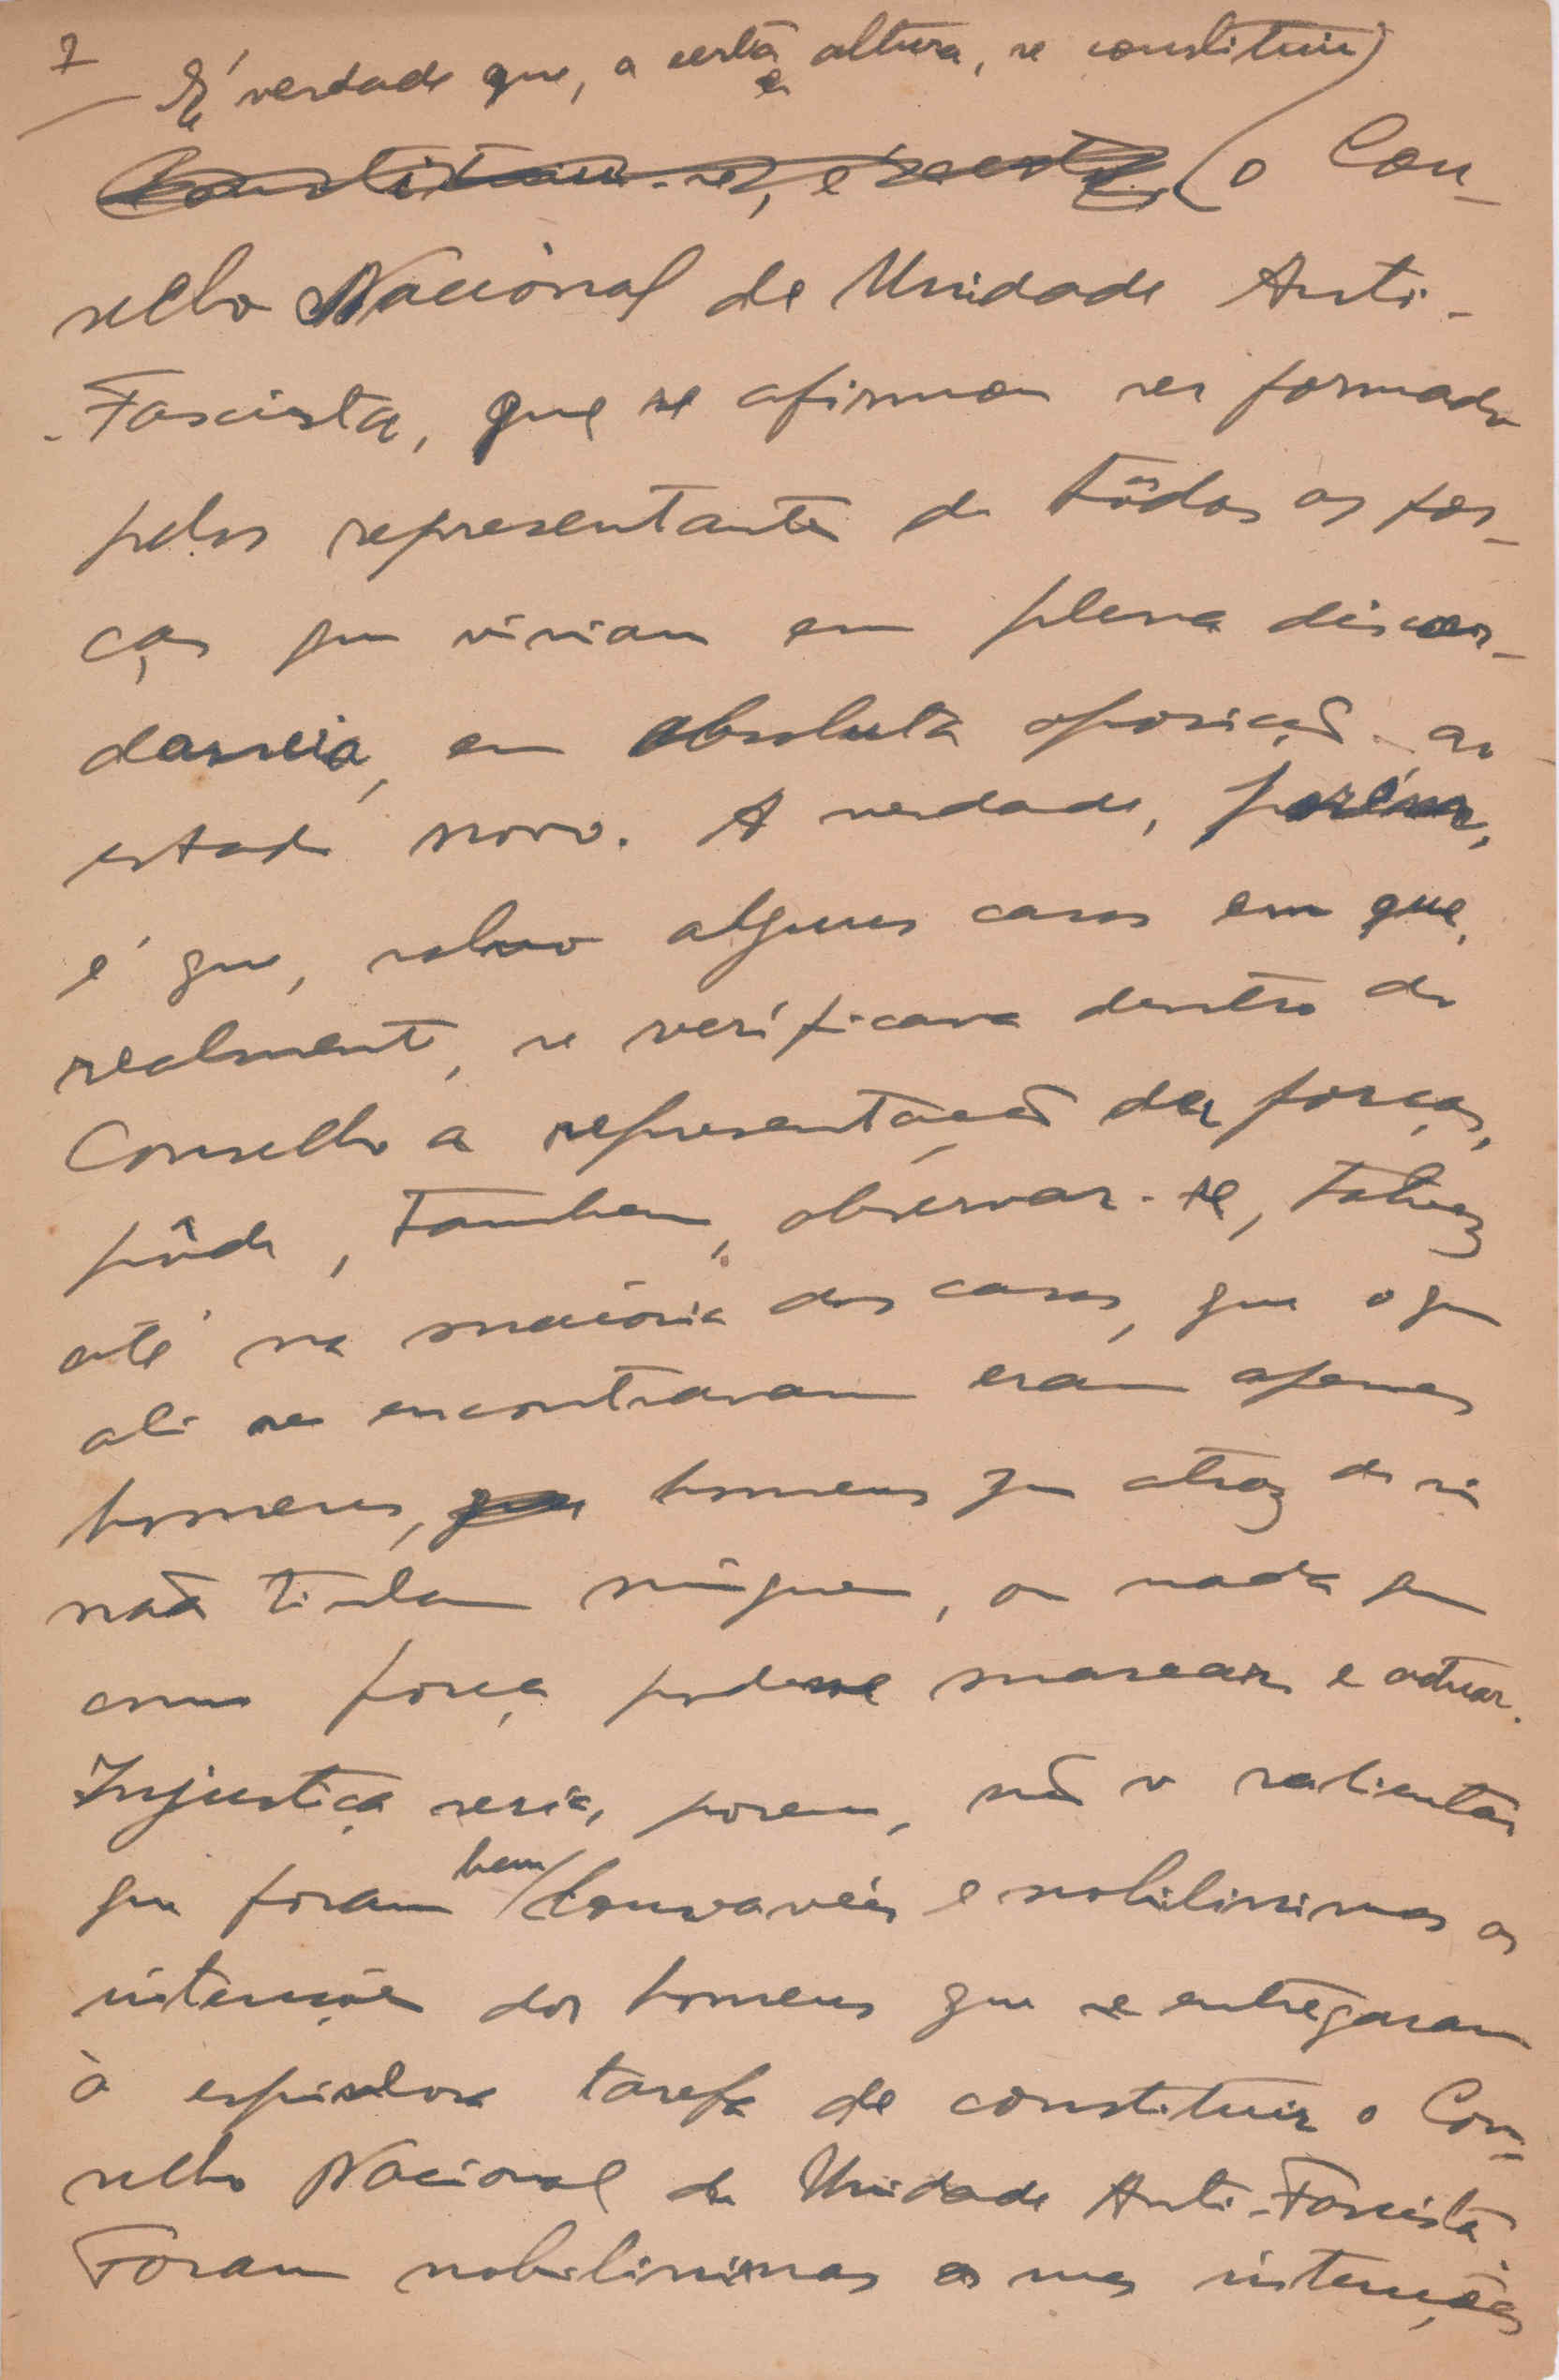 7
É verdade que, a certa altura, se constituiu
Constituiu-se, é certo, o Con-
selho Nacional de Unidade Anti-
-Fascista, que se afirmou ser formado
pelos representantes de tôdas as for-
ças que viviam em plena discor-
dancia, em absoluta oposição ao
estado novo. A verdade, porém,
é que, salvo alguns casos em que,
realmente, se verificava dentro do
Conselho a representação das forças,
pôde, tambem, observar-se, talvez
até na maioria dos casos, que o que
ali se encontravam eram apenas
homens, que homens que atraz de si
não tinham ninguem, ou nada que
como força podesse marcar e actuar.
Injustiça seria, porem, não o salientar
que foram bem louvaveis e nobilissimas as
intenções dos homens que se entregaram
à espinhosa tarefa de constituir o Con-
selho Nacional de Unidade Anti-Fascista.
Foram nobilissimas as suas intenções